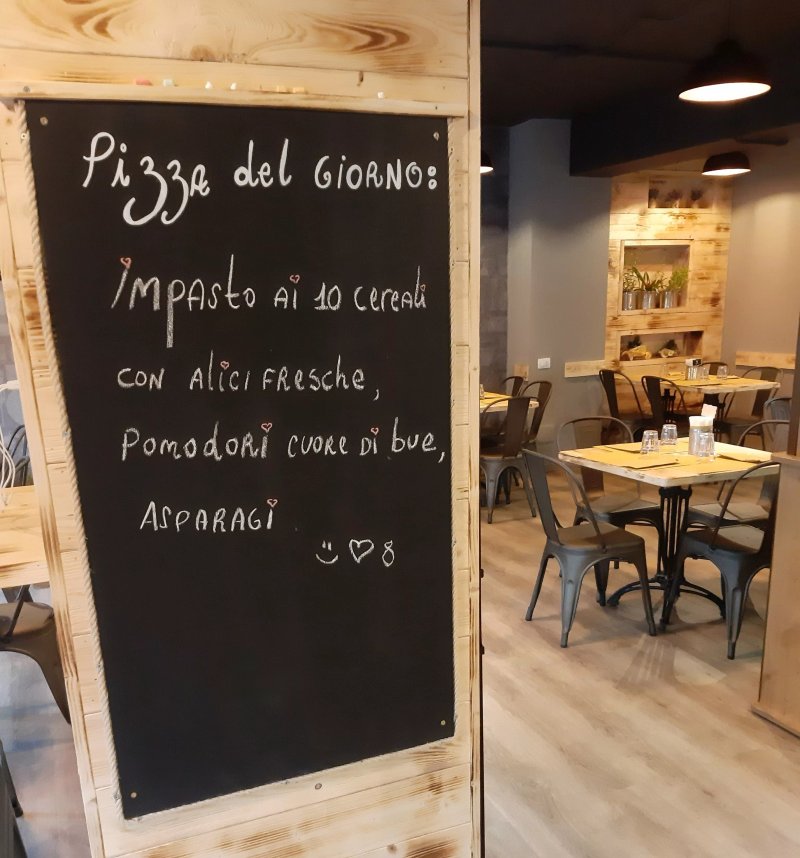 Pizza del GiORNO:
iMPASto Ai 10 cereali
CON Alici FRESCHE,
POMODORi CUORE Di bue,
ASPARAGi